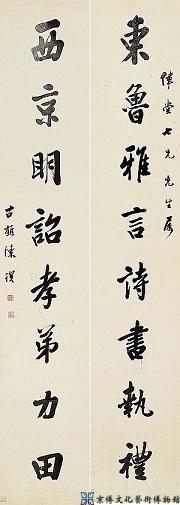 東魯雅言詩書執禮
偉堂七兄先生屬
西京明詔孝弟力田
古㮣陳僎
京博文化藝術博物館